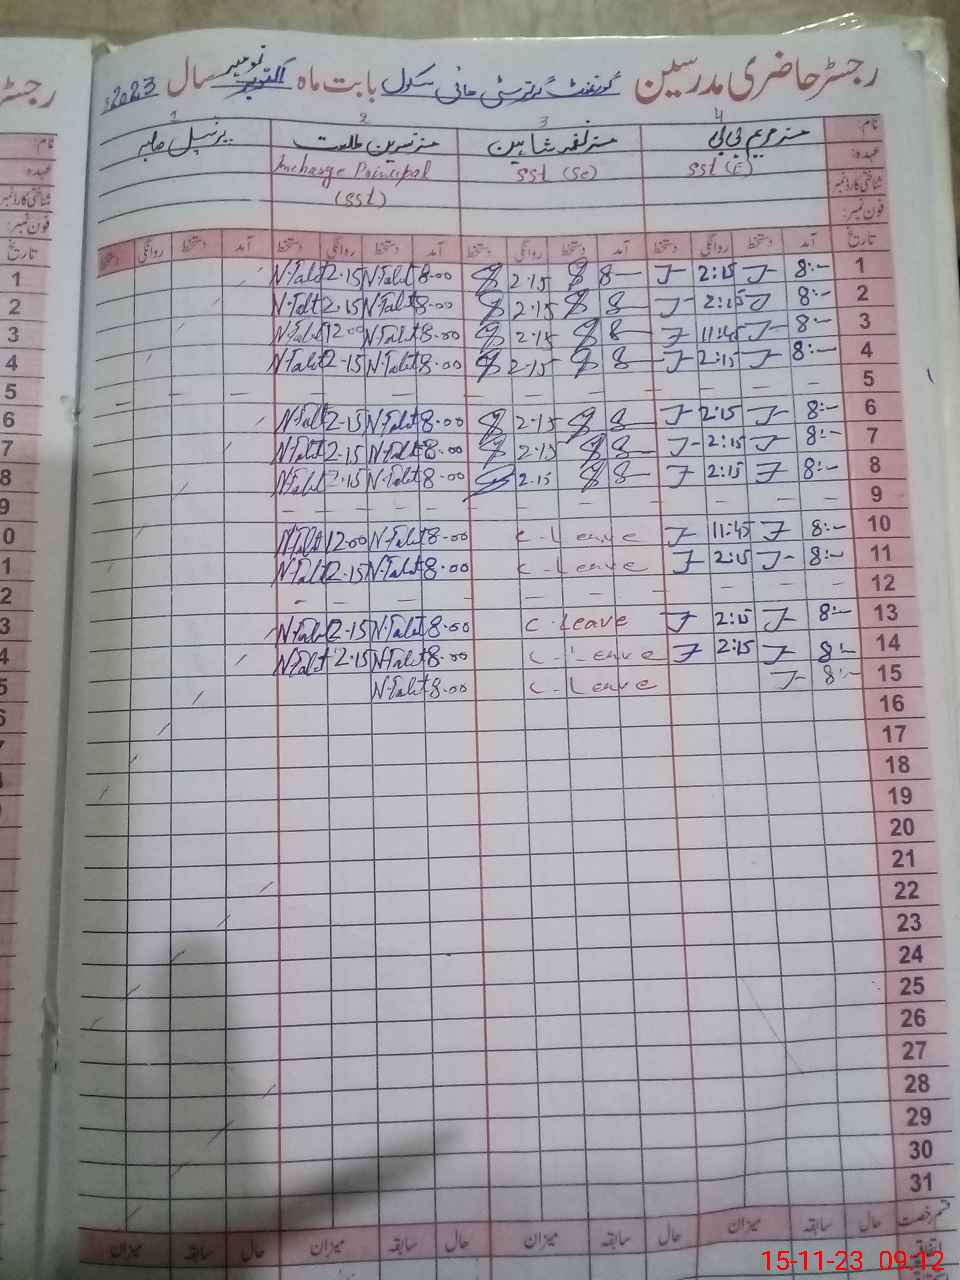 رجسٹر حاضری مدرسین گورنمنٹ گرلز سٹی ہائی سکول بابت ماہ اکتوبر نومبر سال 2023ء
نام: 4 مسز مریم بی بی 3 2 مسز نسرین طلعت 1 پرنسپل صاحبہ
عہدہ: SST (E) SST (Sc) Incharge Principal
شناختی کارڈ نمبر (SST)
فون نمبر:
تاریخ آمد دستخط روانگی دستخط آمد دستخط روانگی دستخط آمد دستخط روانگی دستخط آمد دستخط روانگی دستخط
N.Talat 2.15 N.Talat 8.00 2.15 8 — 2:15 8:— 1
N.Talat 2.15 N.Talat 8.00 2.15 8 — 2:15 8:— 2
N.Talat 12.00 N.Talat 8.00 2.15 8 — 11:45 8:— 3
N.Talat 2.15 N.Talat 8.00 2.15 8 — 2:15 8:— 4
5
N.Talat 2.15 N.Talat 8.00 2.15 8 — 2:15 8:— 6
N.Talat 2.15 N.Talat 8.00 2.15 8 — 2:15 8:— 7
N.Talat 2.15 N.Talat 8.00 2.15 8 — 2:15 8:— 8
9
N.Talat 12.00 N.Talat 8.00 C-Leave 11:45 8:— 10
N.Talat 2.15 N.Talat 8.00 C-Leave 2:15 8:— 11
12
N.Talat 2.15 N.Talat 8.00 C-Leave 2:15 8:— 13
N.Talat 2.15 N.Talat 8.00 C-Leave 2:15 8:— 14
N.Talat 8.00 C-Leave 8:— 15
16
17
18
19
20
21
22
23
24
25
26
27
28
29
30
31
قسم رخصت حال سابقہ میزان حال سابقہ میزان حال سابقہ میزان حال سابقہ میزان
15-11-23 09:12